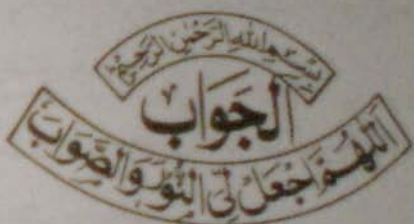 بسم الله الرحمن الرحیم
الجواب
اللھم اجعل لی النور والصواب